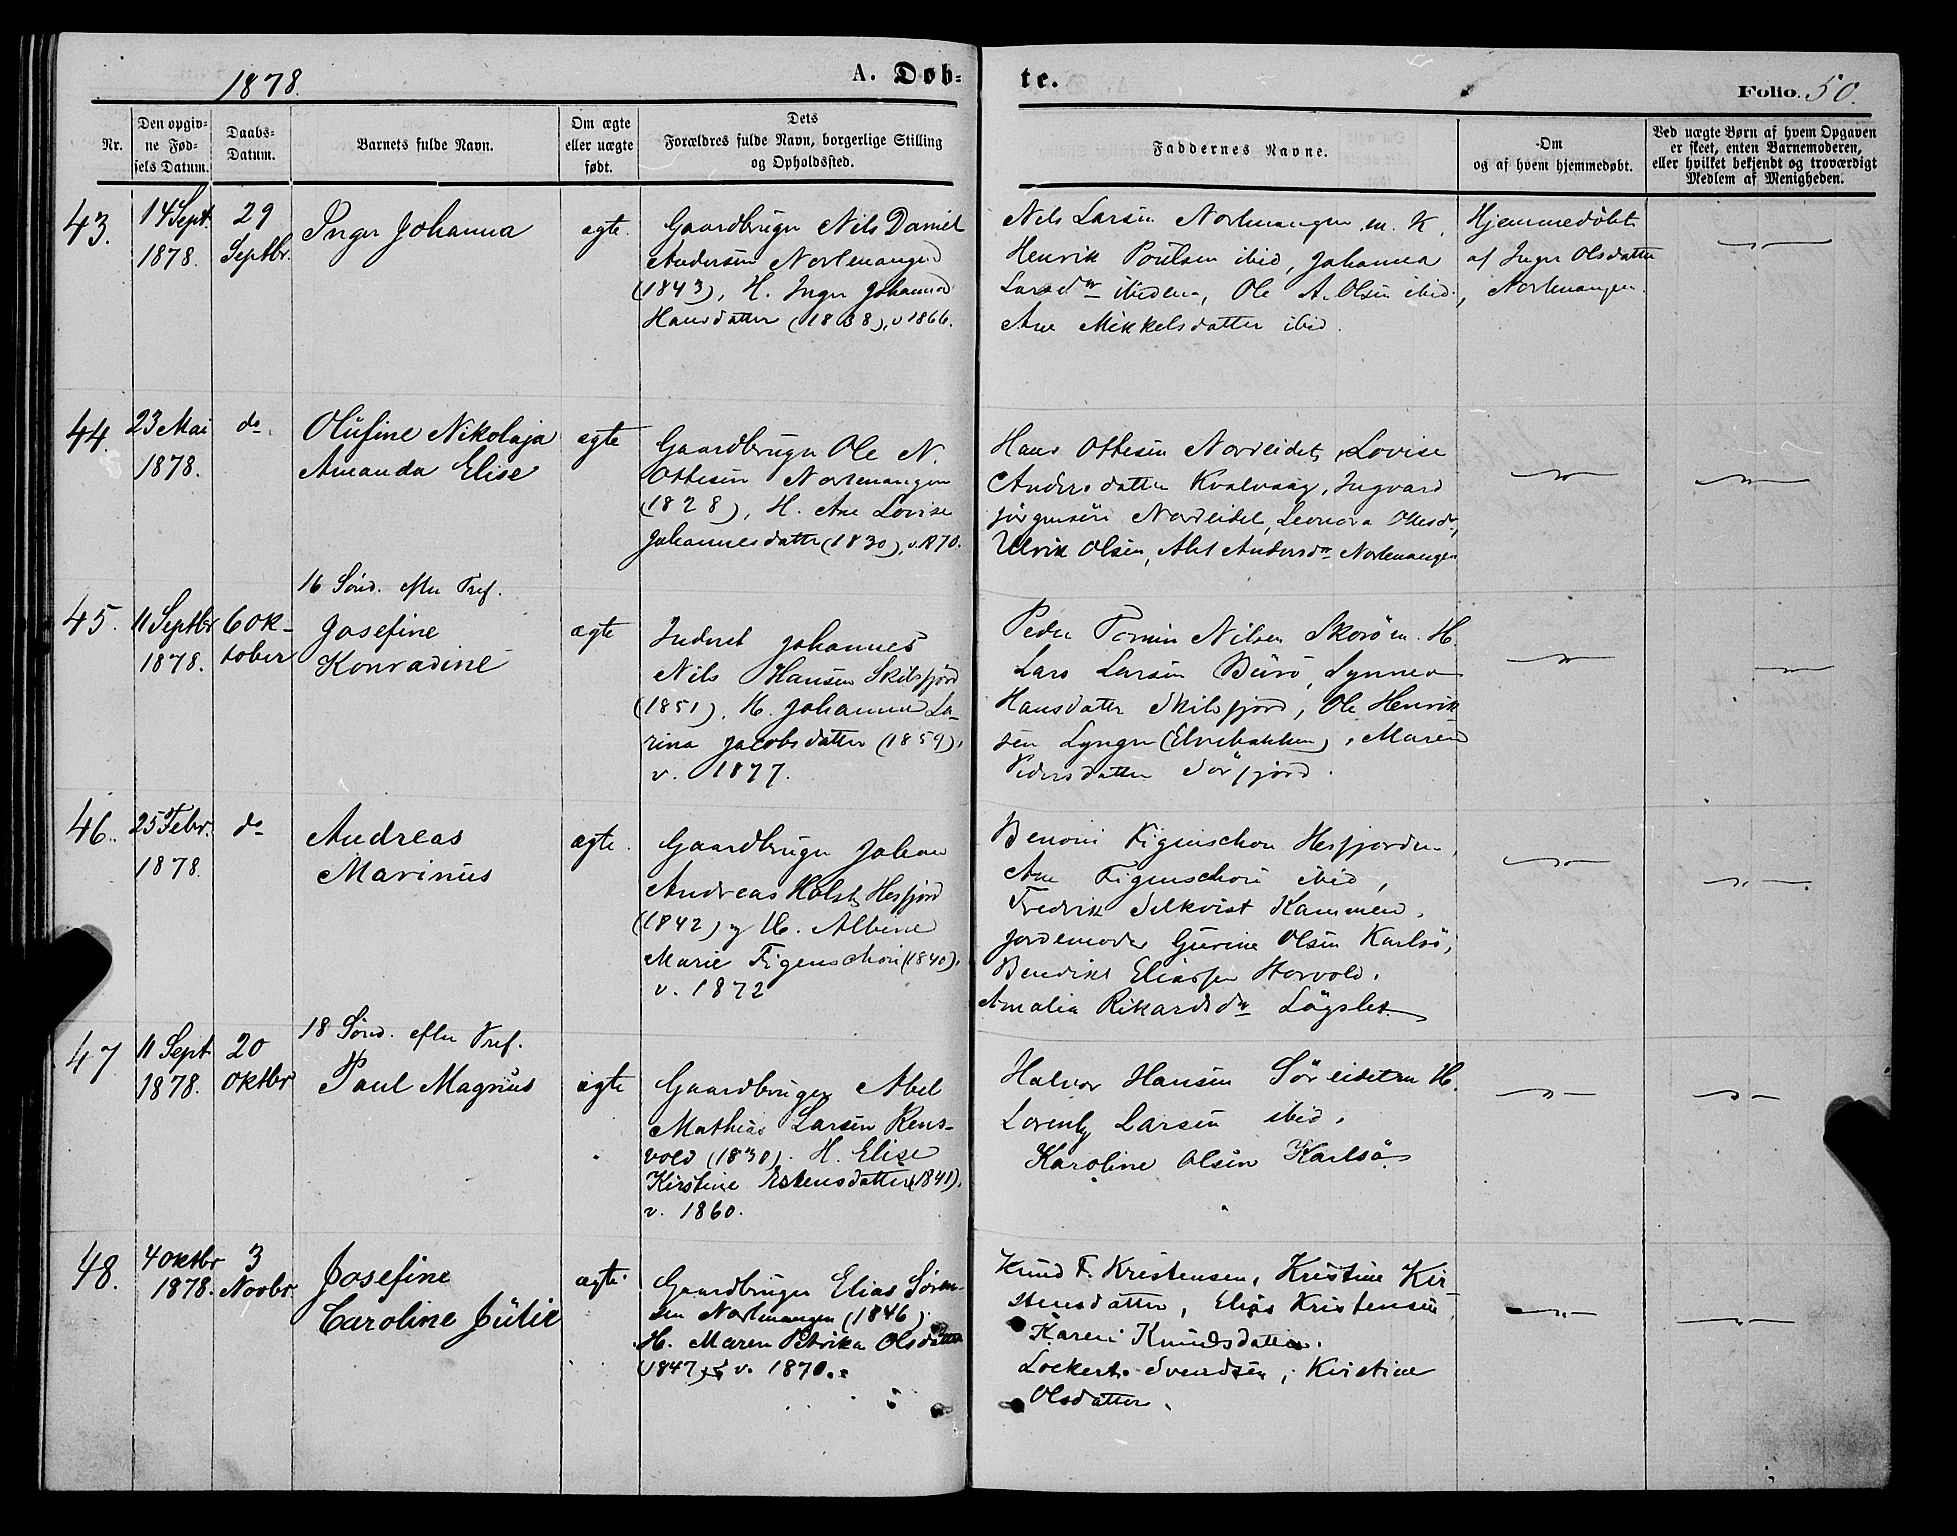 1878.
A. Døb-
te.
Folio. 50.
Nr.
Den opgiv-
ne Fød-
sels Datum.
Daabs-
Datum.
Barnets fulde Navn.
Om ægte
eller uægte
født.
Dets
Forældres fulde Navn, borgerlige Stilling
og Opholdssted.
Faddernes Navne.
Om
og af hvem hjemmedøbt.
Ved uægte Børn af hvem Opgaven
er skeet, enten Barnemoderen,
eller hvilket bekjendt og troværdigt
Medlem af Menigheden.
43.
14 Sept.
1878.
29
Septbr.
Inger Johanna
ægte.
Gaardbruger Nils Daniel
Andersen Nordmangen
(1843), H. Inger Johanna
Hansdatter (1838), v 1866.
Nils Larsen Nordmangen m. K.
Henrik Poulsen ibid, Johanna
Larsdr ibidem, Ole A. Olsen ibid.
Ane Mikkelsdatter ibid.
Hjemmedøbt
af Inger Olsdatter
, Nordmangen.
44.
23 Mai
1878.
do.
Olufine Nikolaja
Amanda Elise
ægte
Gaardbruger Ole N.
Ottesen Nordmangen
(1828), H. Ane Lovise
Johannesdatter (1830), v. 1870.
Hans Ottesen Nordeidet, Lovise
Andersdatter Kvalvaag, Ingvard
Jørgensen Nordeidet, Leonora Olesdr,
Ulrik Olsen, Andersdr Nordmangen
16 Sønd. efter Tref.
45.
11 Septbr
1878.
6 Ok-
tober
Josefine
Konradine
ægte
Inderst Johannes
Nils Hansen Skilsfjord
(1851). H. Johanna La-
rina Jacobsdatter (1859),
v. 1877.
Peder Tomin Nilsen Skorø m. H.
Lars Larsen Burø, Synnev
Hansdatter Skilsfjord, Ole Henrik-
sen Lyngen (Elvebakken), Maren
Pedersdatter Sørfjord.
46.
25 Febr.
1878.
do
Andreas
Marinus
ægte.
Gaardbruger Johan
Andreas Holst, Hesfjord
(1842) og H. Albine
Marie Figenschou (1840),
v. 1872
Benoni Figenschou Hesfjorden,
Ane Figenschou ibid,
Fredrik Selkvist Kammen,
Jordemoder Gurine Olsen Karlsø,
Benedikt Eliassen Storvold,
Amalia Rikardsdr Løgslet
18 Sønd. efter Tref.
47
11 Sept.
1878.
20
Oktbr
Paul Magnus
ægte
Gaardbruger Abel
Mathias Larsen Rens-
vold (1830). H. Elise
Kirstine Estensdatter (1841).
v. 1860.
Halvor Hansen Søreidet m H.
Lorents Larsen ibid.
Karoline Olsen Karlsø
48.
4 Oktbr
1878.
3
Novbr
Josefine
Caroline Julie
ægte.
Gaardbruger Elias Søren-
sen Nordmangen (1846)
H. Maren Petrika Olsdatter
(1847), v. 1870.
Knud F. Kristensen, Kristine Kir-
stensdatter, Elias Kristensen
Karen Knudsdatter.
Lockert Svendsen, Kristine
Olsdatter.